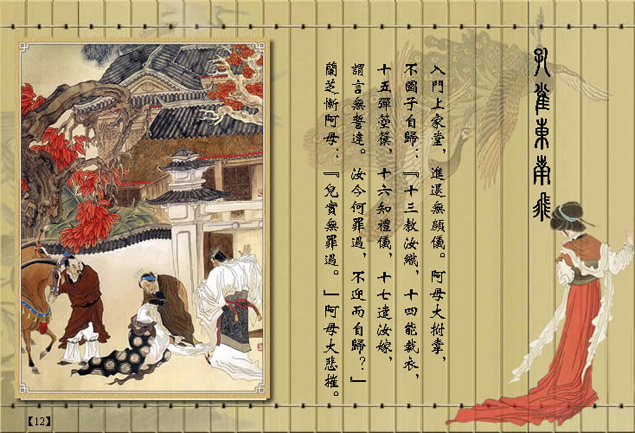 孔雀東南飛
入門上家堂，進退無顏儀。阿母大拊掌，
不圖子自歸：『十三教汝織，十四能裁衣，
十五彈箜篌，十六知禮儀，十七遣汝嫁，
謂言無誓違。汝今何罪過，不迎而自歸？』
蘭芝慚阿母：『兒實無罪過。』阿母大悲摧。
【12】